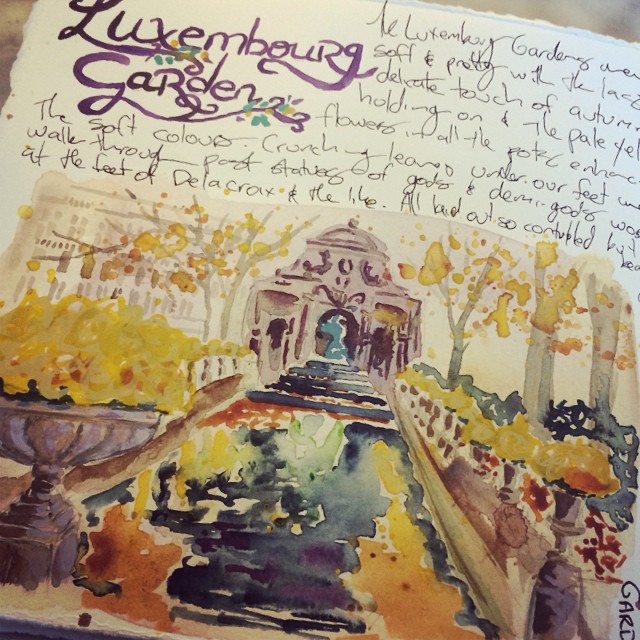 Luxembourg
Gardens
The Luxembourg Gardens were
soft & pretty with the last
delicate touch of autumn
holding on & the pale yel
flowers in all the pots enhance
The soft colours. Crunching leaves under our feet we
walk through past statues of gods & demi-gods
at the feet of Delacroix & the like. All laid out so controlled
GAR